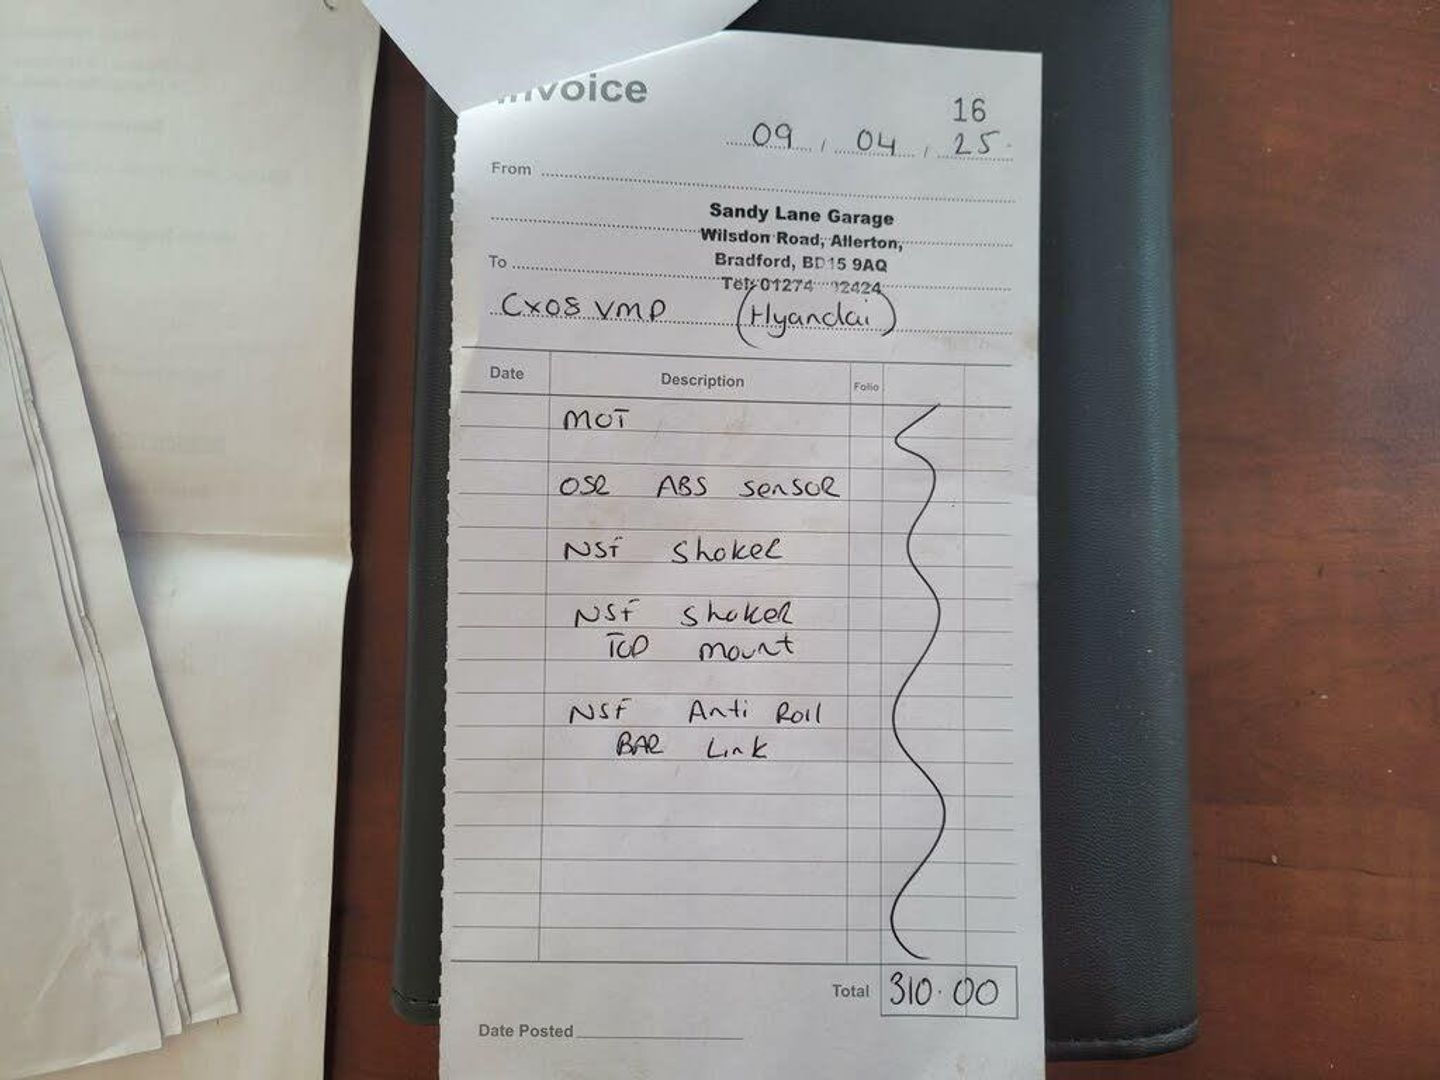 Invoice
16
09 / 04 / 25
From
Sandy Lane Garage
Wilsdon Road, Allerton,
To
Bradford, BD15 9AQ
Tel: 01274 2424
CX08 VMP (Hyandai)
Date Description Folio
MOT
OSR ABS SENSOR
NSF Shoker
NSF Shoker
TOP mount
NSF Anti Roll
BAR Link
Total 310.00
Date Posted